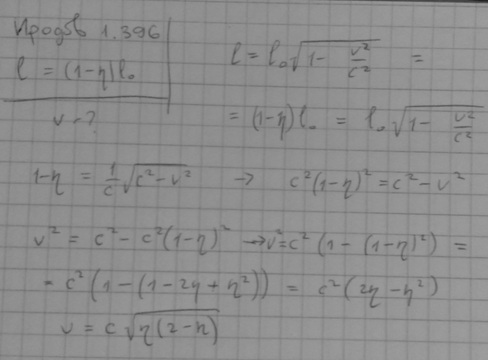 Иродов 1.396
l = (1-η)l₀
v - ?
l = l₀√(1 - v²/c²) =
= (1-η)l₀ = l₀√(1 - v²/c²)
1-η = 1/c √(c² - v²) → c²(1-η)² = c² - v²
v² = c² - c²(1-η)² → v² = c²(1 - (1-η)²) =
= c²(1 - (1 - 2η + η²)) = c²(2η - η²)
v = c√(η(2-η))